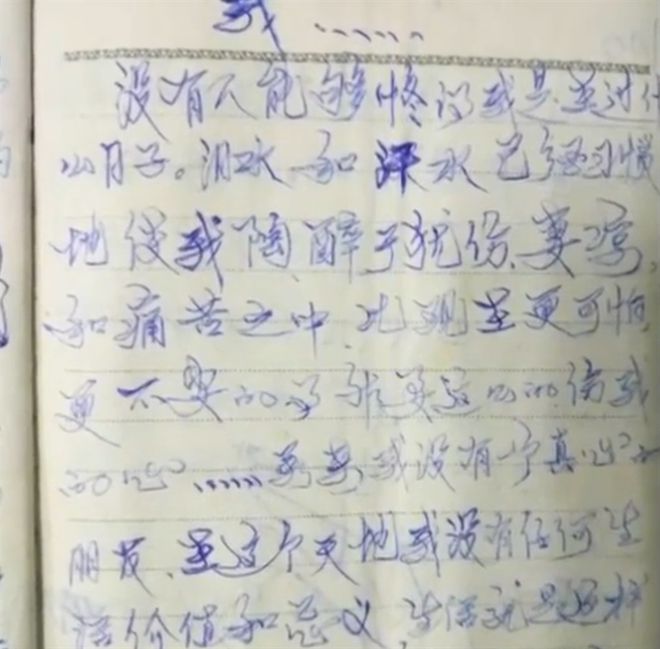 我……
没有人能够懂得我是在过什
么日子。泪水和汗水已经习惯
地使我陶醉于忧伤、凄凉、
和痛苦之中,比现在更可怕
更不要的
的心……
我没有一个真心
朋友,在这个天地我没有任何生
活价值和意义,生活就是这样